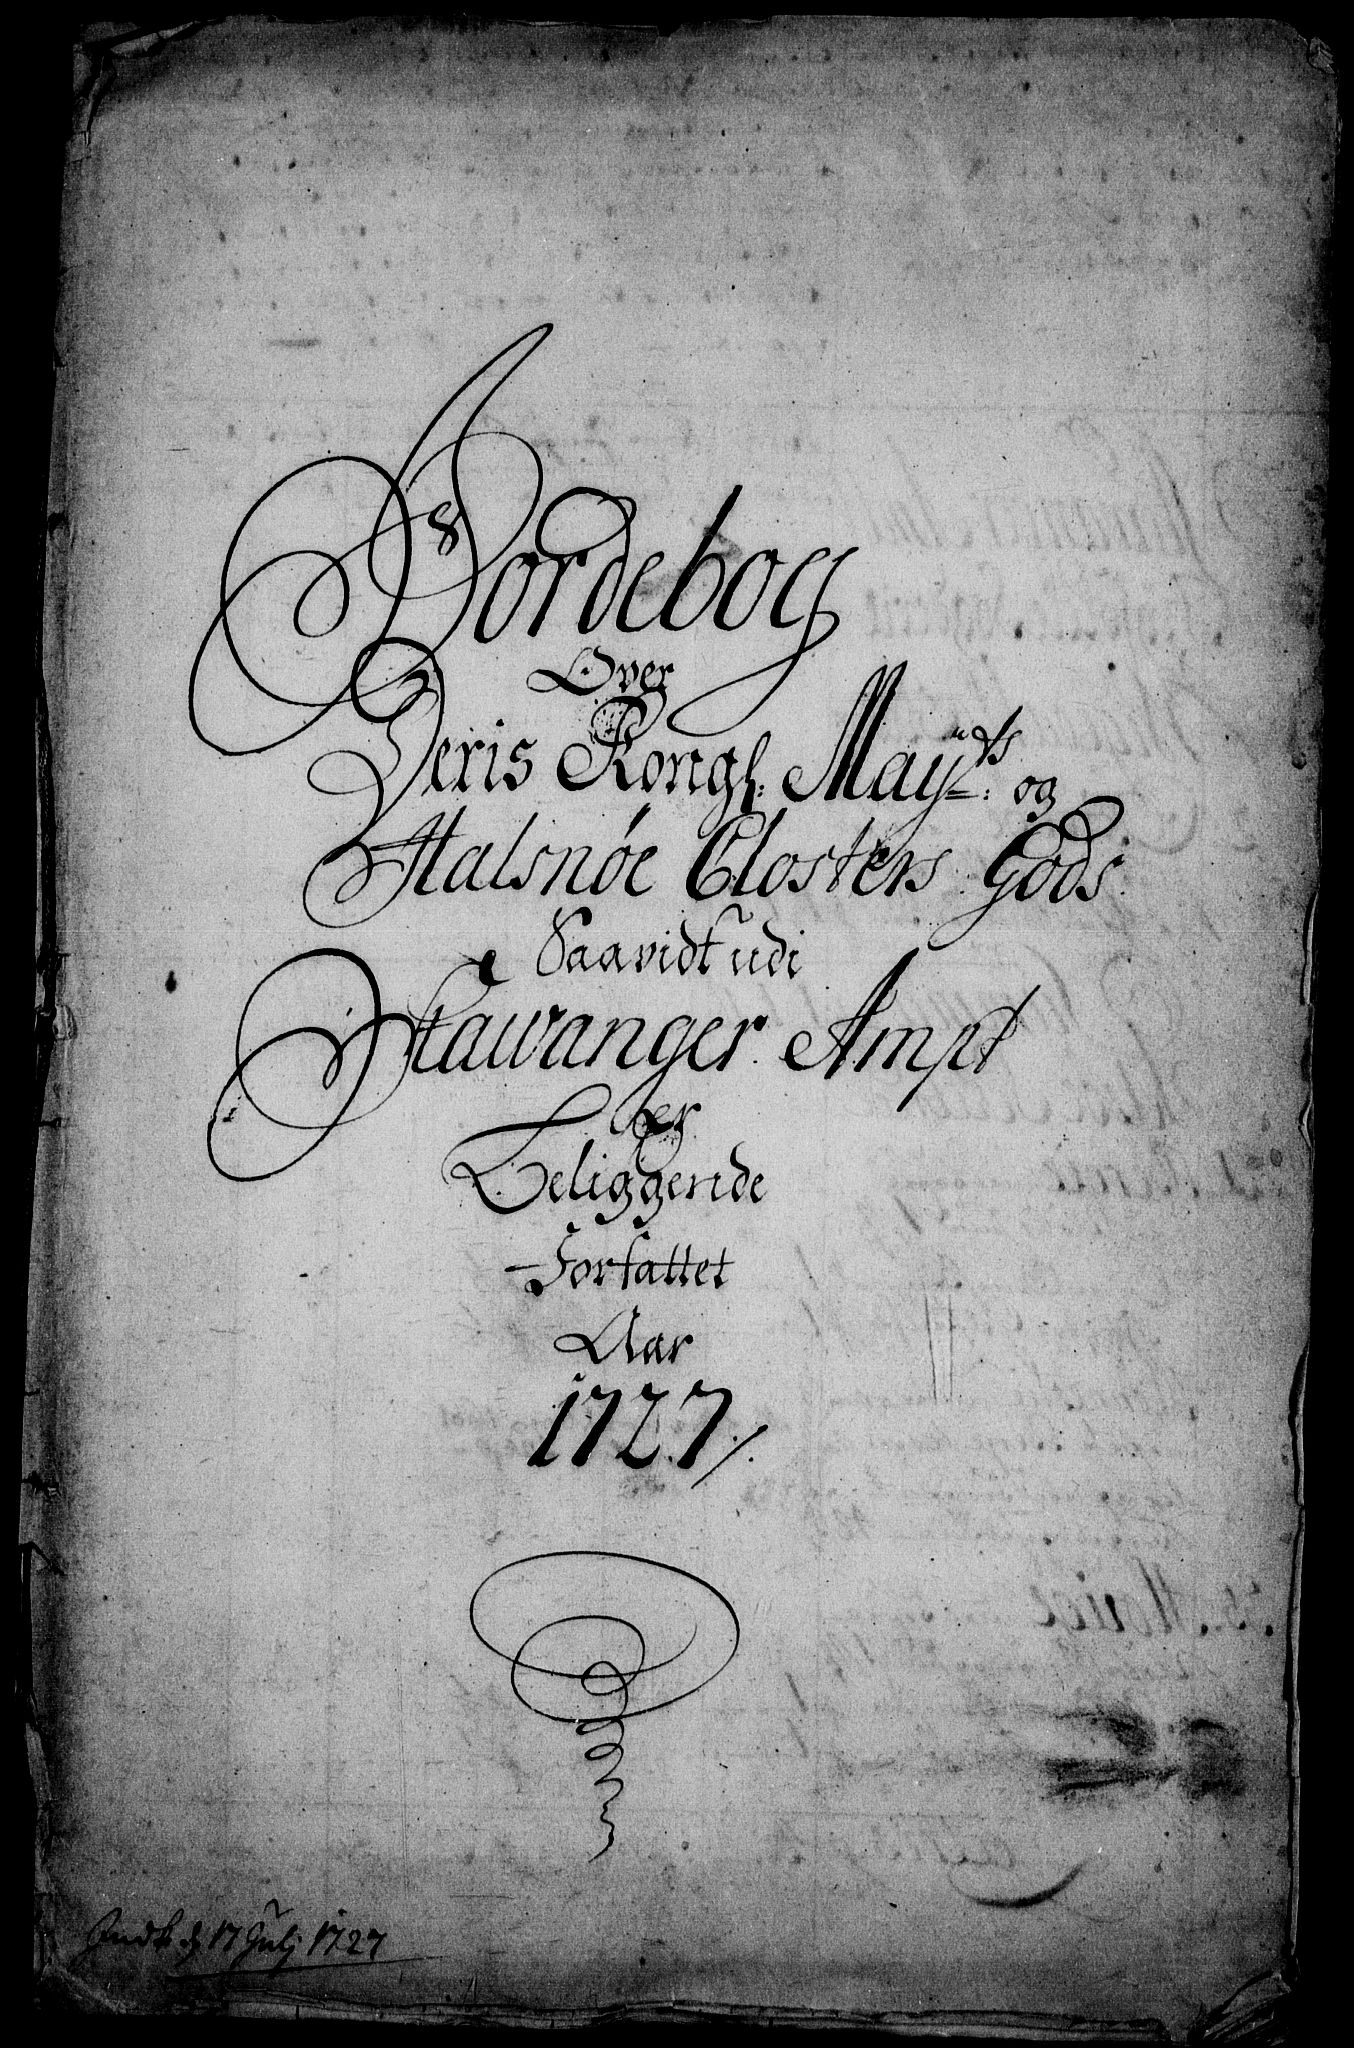 Jordebog
Over
Deris Kongl: May:ts og
Halsnöe Closters Gods
Saavidt udi
Stawanger Ampt
er
Beliggende
Forfattet
Aar
1727/.
Indk d 17 Julj 1727